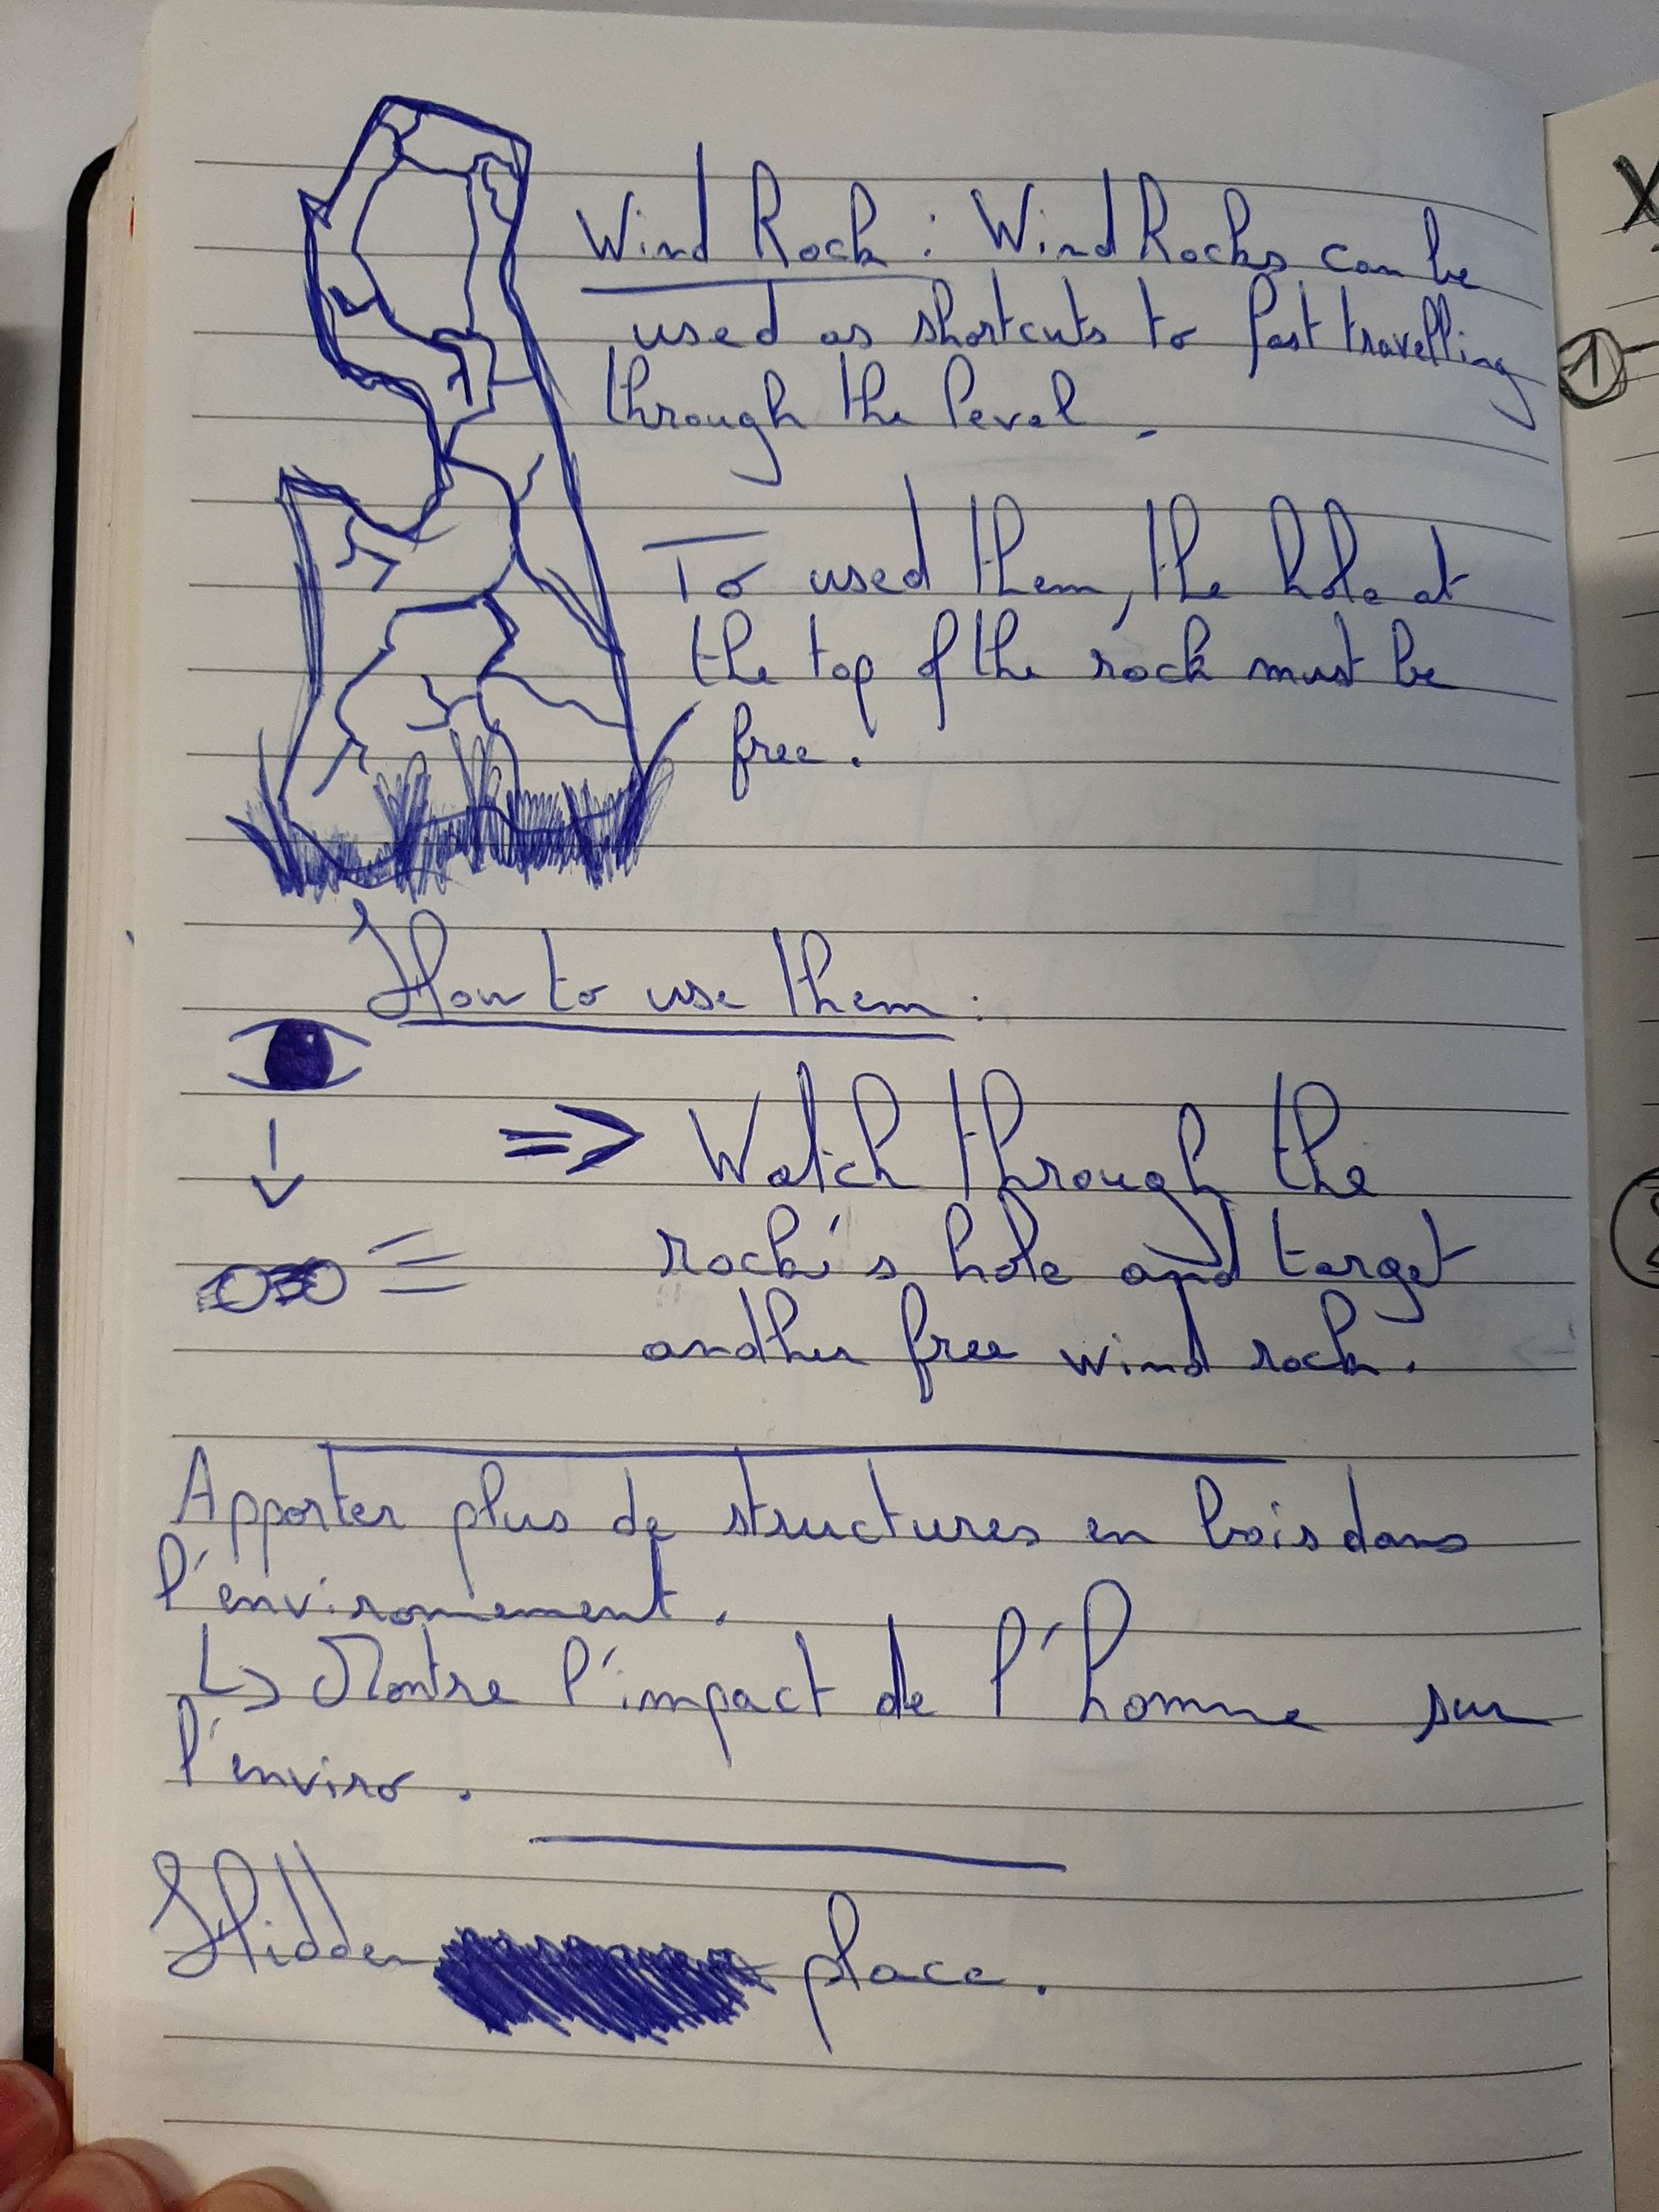 Wind Rock : Wind Rocks can be
used as shortcuts to fast travelling
through the level.
To used them, the hole at
the top of the rock must be
free.
How to use them :
=> Watch through the
rock's hole and target
another free wind rock.
Apporter plus de structures en bois dans
l'environnement.
↳ Montre l'impact de l'homme sur
l'enviro.
Hidden place.
1